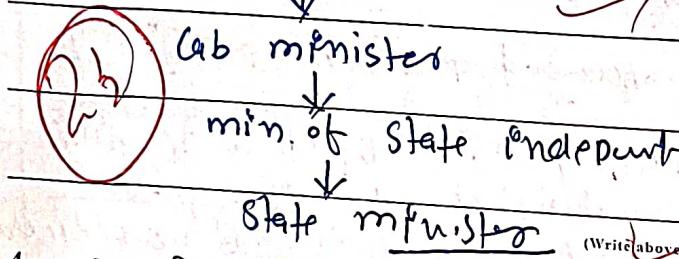 Cab minister
↓
min. of State. indepent
↓
State minister
(Write above